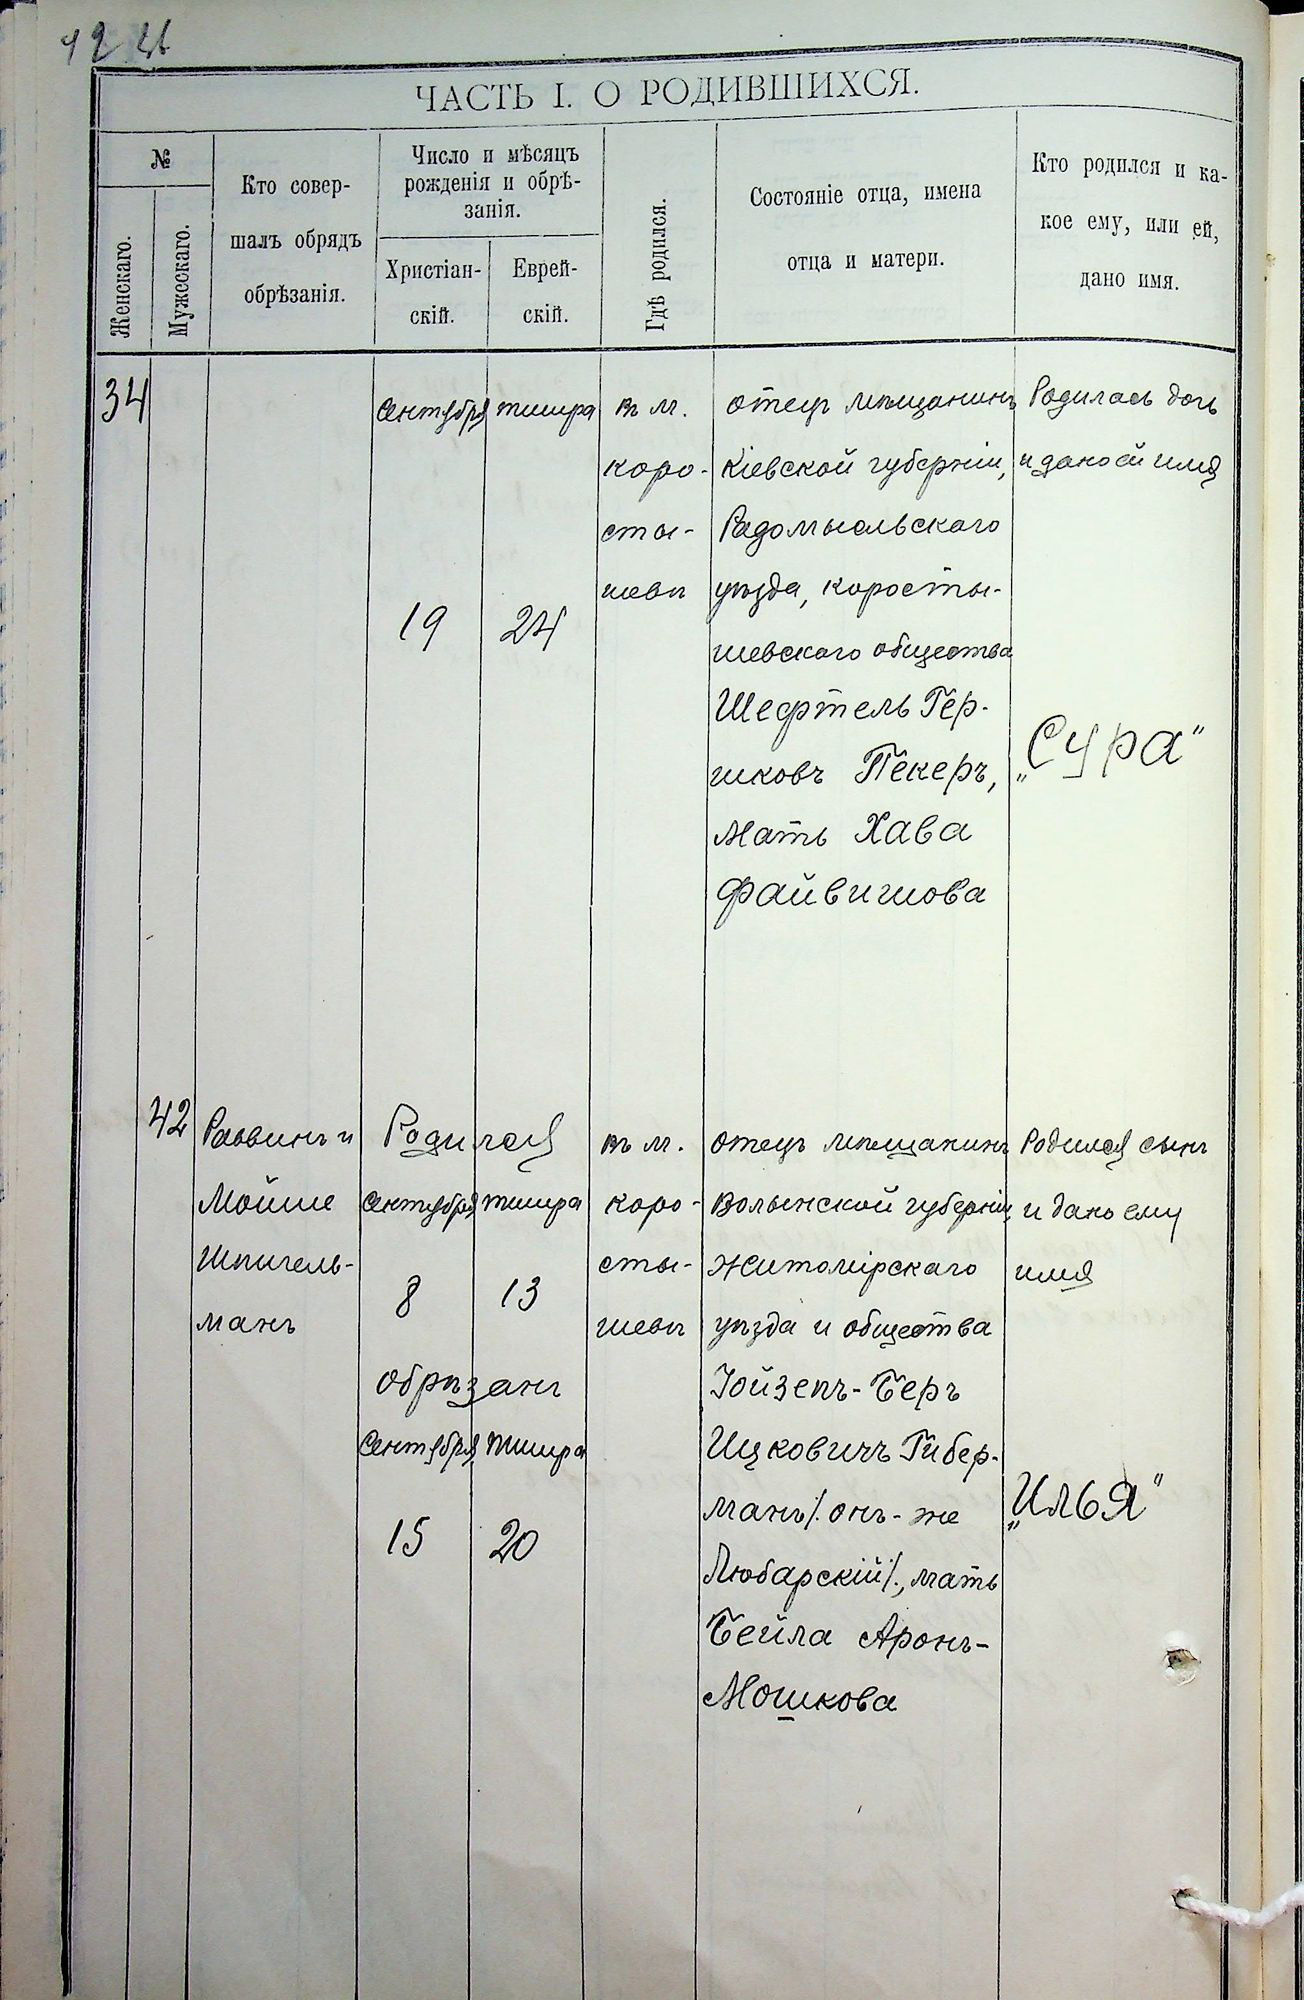 ЧАСТЬ I. О РОДИВШИХСЯ.
№
Женскаго.
Мужескаго.
Кто совер-
шалъ обрядъ
обрѣзанія.
Число и мѣсяцъ
рожденія и обрѣ-
занія.
Христіан-
скій.
Еврей-
скій.
Гдѣ родился.
Состояніе отца, имена
отца и матери.
Кто родился и ка-
кое ему, или ей,
дано имя.
34
Сентября
19
тишра
24
въ м.
коро-
сты-
шевѣ
отецъ мѣщанинъ
Кіевской губерніи,
Радомысльскаго
уѣзда, коросты-
шевскаго общества
Шефтель Гер-
шковъ Пекеръ,
мать Хава
Файвишова
Родилась дочь
и дано ей имя
„Сура"
42
Раввинъ и
Мойше
Шпигель-
манъ
Родился
Сентября тишра
8 13
обрѣзанъ
Сентября тишра
15 20
въ м.
коро-
сты-
шевѣ
отецъ мѣщанинъ
Волынской губерніи,
Житомірскаго
уѣзда и общества
Іойзепъ-Беръ
Ицковичъ Гибер-
манъ /. онъ-же
Любарскій /., мать
Бейла Аронъ-
Мошкова
Родился сынъ
и дано ему
имя
„Илья"